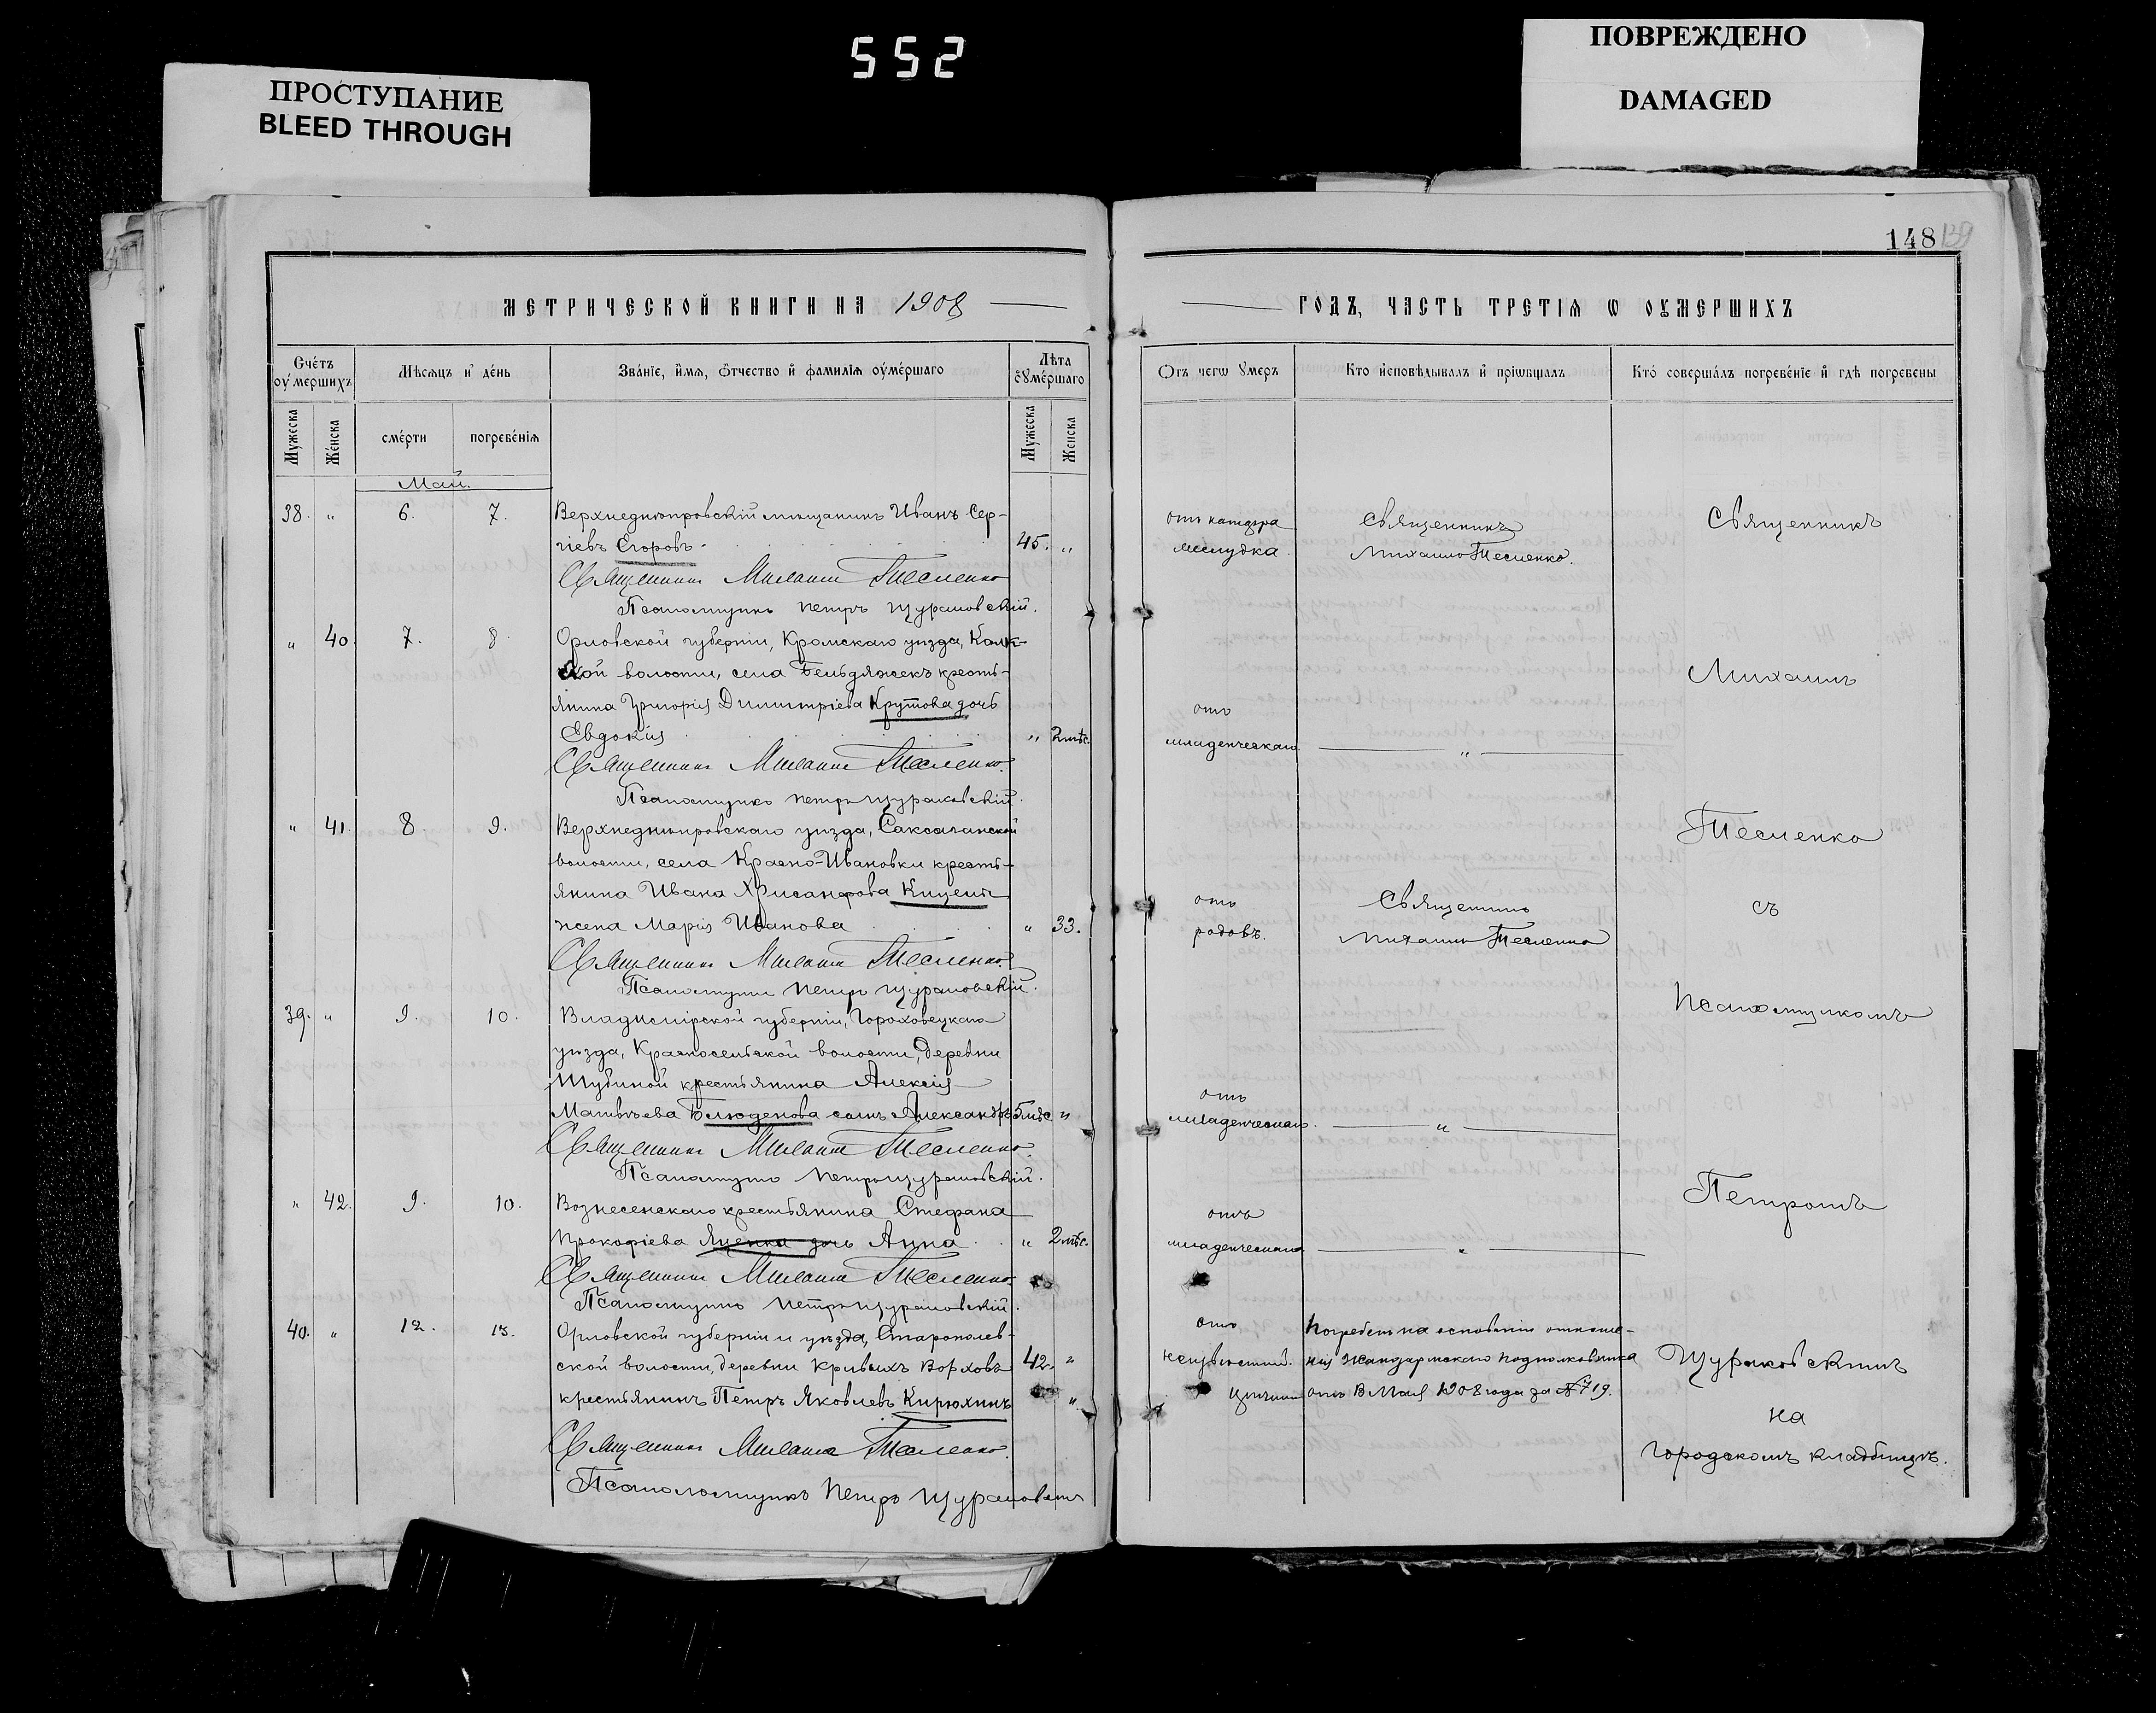 552
ПРОСТУПАНИЕ
BLEED THROUGH
ПОВРЕЖДЕНО
DAMAGED
148
139
МЕТРИЧЕСКОЙ КНИГИ НА 1908
ГОДЪ, ЧАСТЬ ТРЕТІѦ Ѡ ОУМЕРШИХЪ
Счетъ оумершихъ
Мѣсяцъ и день
Званіе, имѧ, отчество и фамиліѧ оумершаго
Лѣта оумершаго
Мужеска
Женска
смерти
погребеніѧ
Мужеска
Женска
Отъ чегѡ умеръ
Кто исповѣдывалъ и пріѡбщалъ
Кто совершалъ погребеніе и гдѣ погребены
Май.
38. " 6. 7. Верхнеднѣпровскій мѣщанинъ Иванъ Сер-
гіевъ Егоровъ. 45. "
Священникъ Михаилъ Тесленко
Псаломщикъ Петръ Щураковскій.
" 40. 7. 8. Орловской губерніи, Кромскаго уѣзда,
ской волости, села Бельдяжекъ кресть-
янина Григорія Димитріева Крутова дочь
Евдокія " 2 мѣс.
Священникъ Михаилъ Тесленко.
Псаломщикъ Петръ Щураковскій.
" 41. 8. 9. Верхнеднѣпровскаго уѣзда, Саксаганской
волости, села Красно-Ивановки кресть-
янина Ивана Хрисанфова
жена Марія Иванова " 33.
Священникъ Михаилъ Тесленко.
Псаломщикъ Петръ Щураковскій.
39. " 9. 10. Владимірской губерніи, Гороховецкаго
уѣзда, Красносельской волости, деревни
Шубиной крестьянина Алексія
Матвѣева Блюденова сынъ Александръ 5 мѣс. "
Священникъ Михаилъ Тесленко.
Псаломщикъ Петръ Щураковскій.
" 42. 9. 10. Вознесенскаго крестьянина Стефана
Прокофіева Яценка дочь Анна " 2 мѣс.
Священникъ Михаилъ Тесленко.
Псаломщикъ Петръ Щураковскій.
40. " 12. 13. Орловской губерніи и уѣзда, Старополев-
ской волости, деревни Кривыхъ Верховъ 42. "
крестьянинъ Петръ Яковлевъ Кирюхинъ "
Священникъ Михаилъ Тесленко.
Псаломщикъ Петръ Щураковскій
отъ катарра
желудка.
Священникъ
Михаилъ Тесленко.
отъ
младенческаго. "
отъ
родовъ.
Священникъ
Михаилъ Тесленко
отъ
младенческаго. "
отъ
младенческаго "
отъ
неизвѣстной
причины
Погребенъ на основаніи отноше-
нія Жандармскаго подполковника
отъ 13 Мая 1908 года за № 719.
Священникъ
Михаилъ
Тесленко
съ
псаломщикомъ
Петромъ
Щураковскимъ
на
городскомъ кладбищѣ.